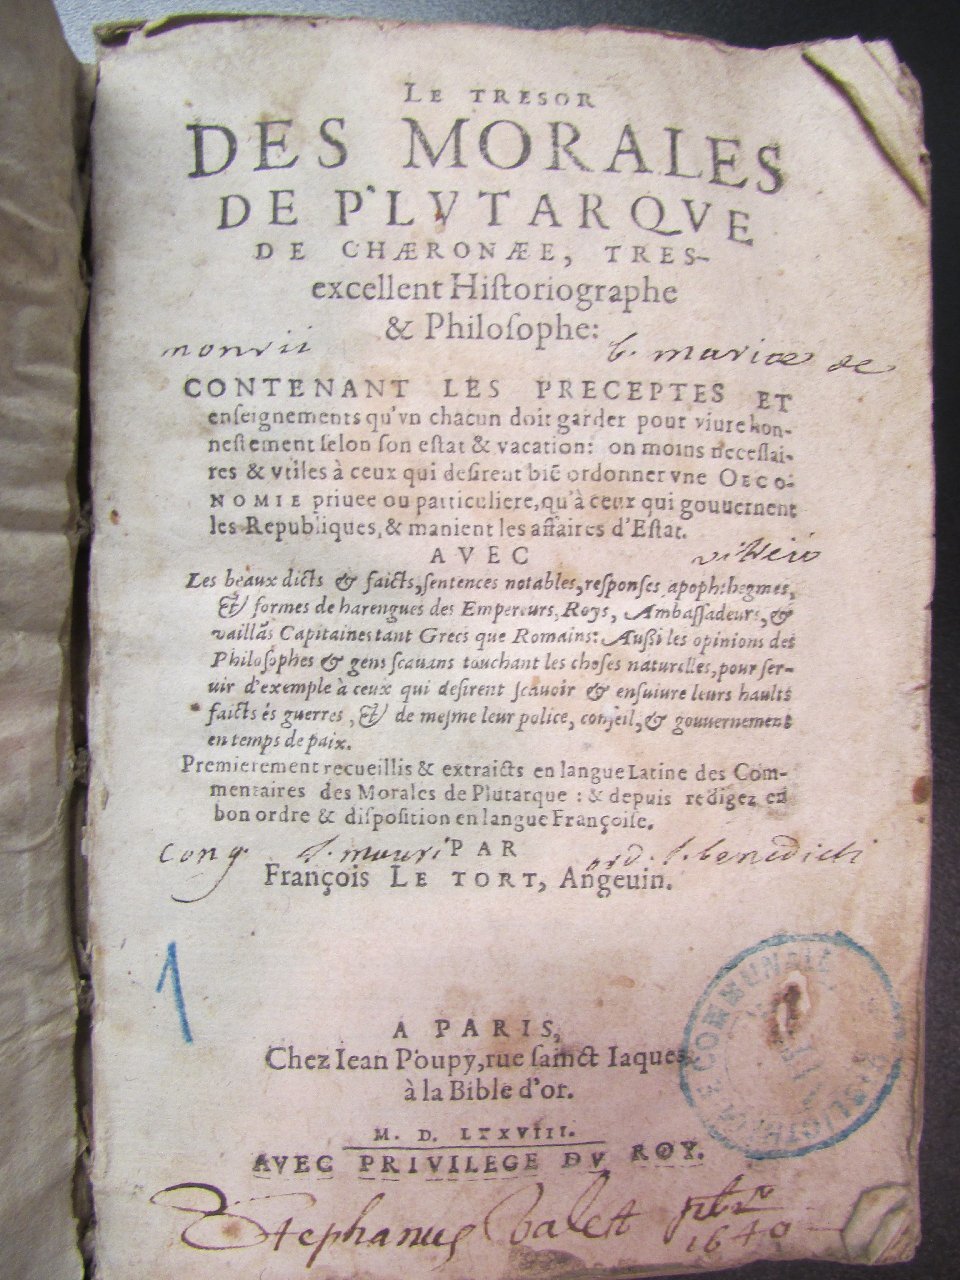 LE TRESOR
DES MORALES
DE PLVTARQVE
DE CHÆRONÆE, TRES-
excellent Hiſtoriographe
& Philoſophe:
monrii b. mauriae de
CONTENANT LES PRECEPTES ET
enſeignements qu'vn chacun doit garder pour viure hon-
neſtement ſelon ſon eſtat & vacation: on moins neceſſai-
res & vtiles à ceux qui deſirent biē ordonner vne OECO-
NOMIE priuee ou particuliere, qu'à ceux qui gouuernent
les Republiques, & manient les affaires d'Eſtat.
AVEC
Les beaux dicts & faicts, ſentences notables, reſponſes apophthegmes,
& formes de harengues des Empereurs, Roys, Ambaſſadeurs, &
vaillās Capitaines tant Grecs que Romains: Auſsi les opinions des
Philoſophes & gens ſcauans touchant les choſes naturelles, pour ſer-
uir d'exemple à ceux qui deſirent ſcauoir & enſuiure leurs haults
faicts és guerres, & de meſme leur police, conſeil, & gouuernement
en temps de paix.
Premierement recueillis & extraicts en langue Latine des Com-
mentaires des Morales de Plutarque : & depuis redigez en
bon ordre & diſpoſition en langue Françoiſe.
PAR
Cong. S. mauri ord. S. benedicti
François LE TORT, Angeuin.
1
A PARIS,
Chez Iean Poupy, rue ſainct Iaques
à la Bible d'or.
M. D. LXXVIII.
AVEC PRIVILEGE DV ROY.
BIBLIOTHEQUE COMMUNALE
Stephanus Valet
1640